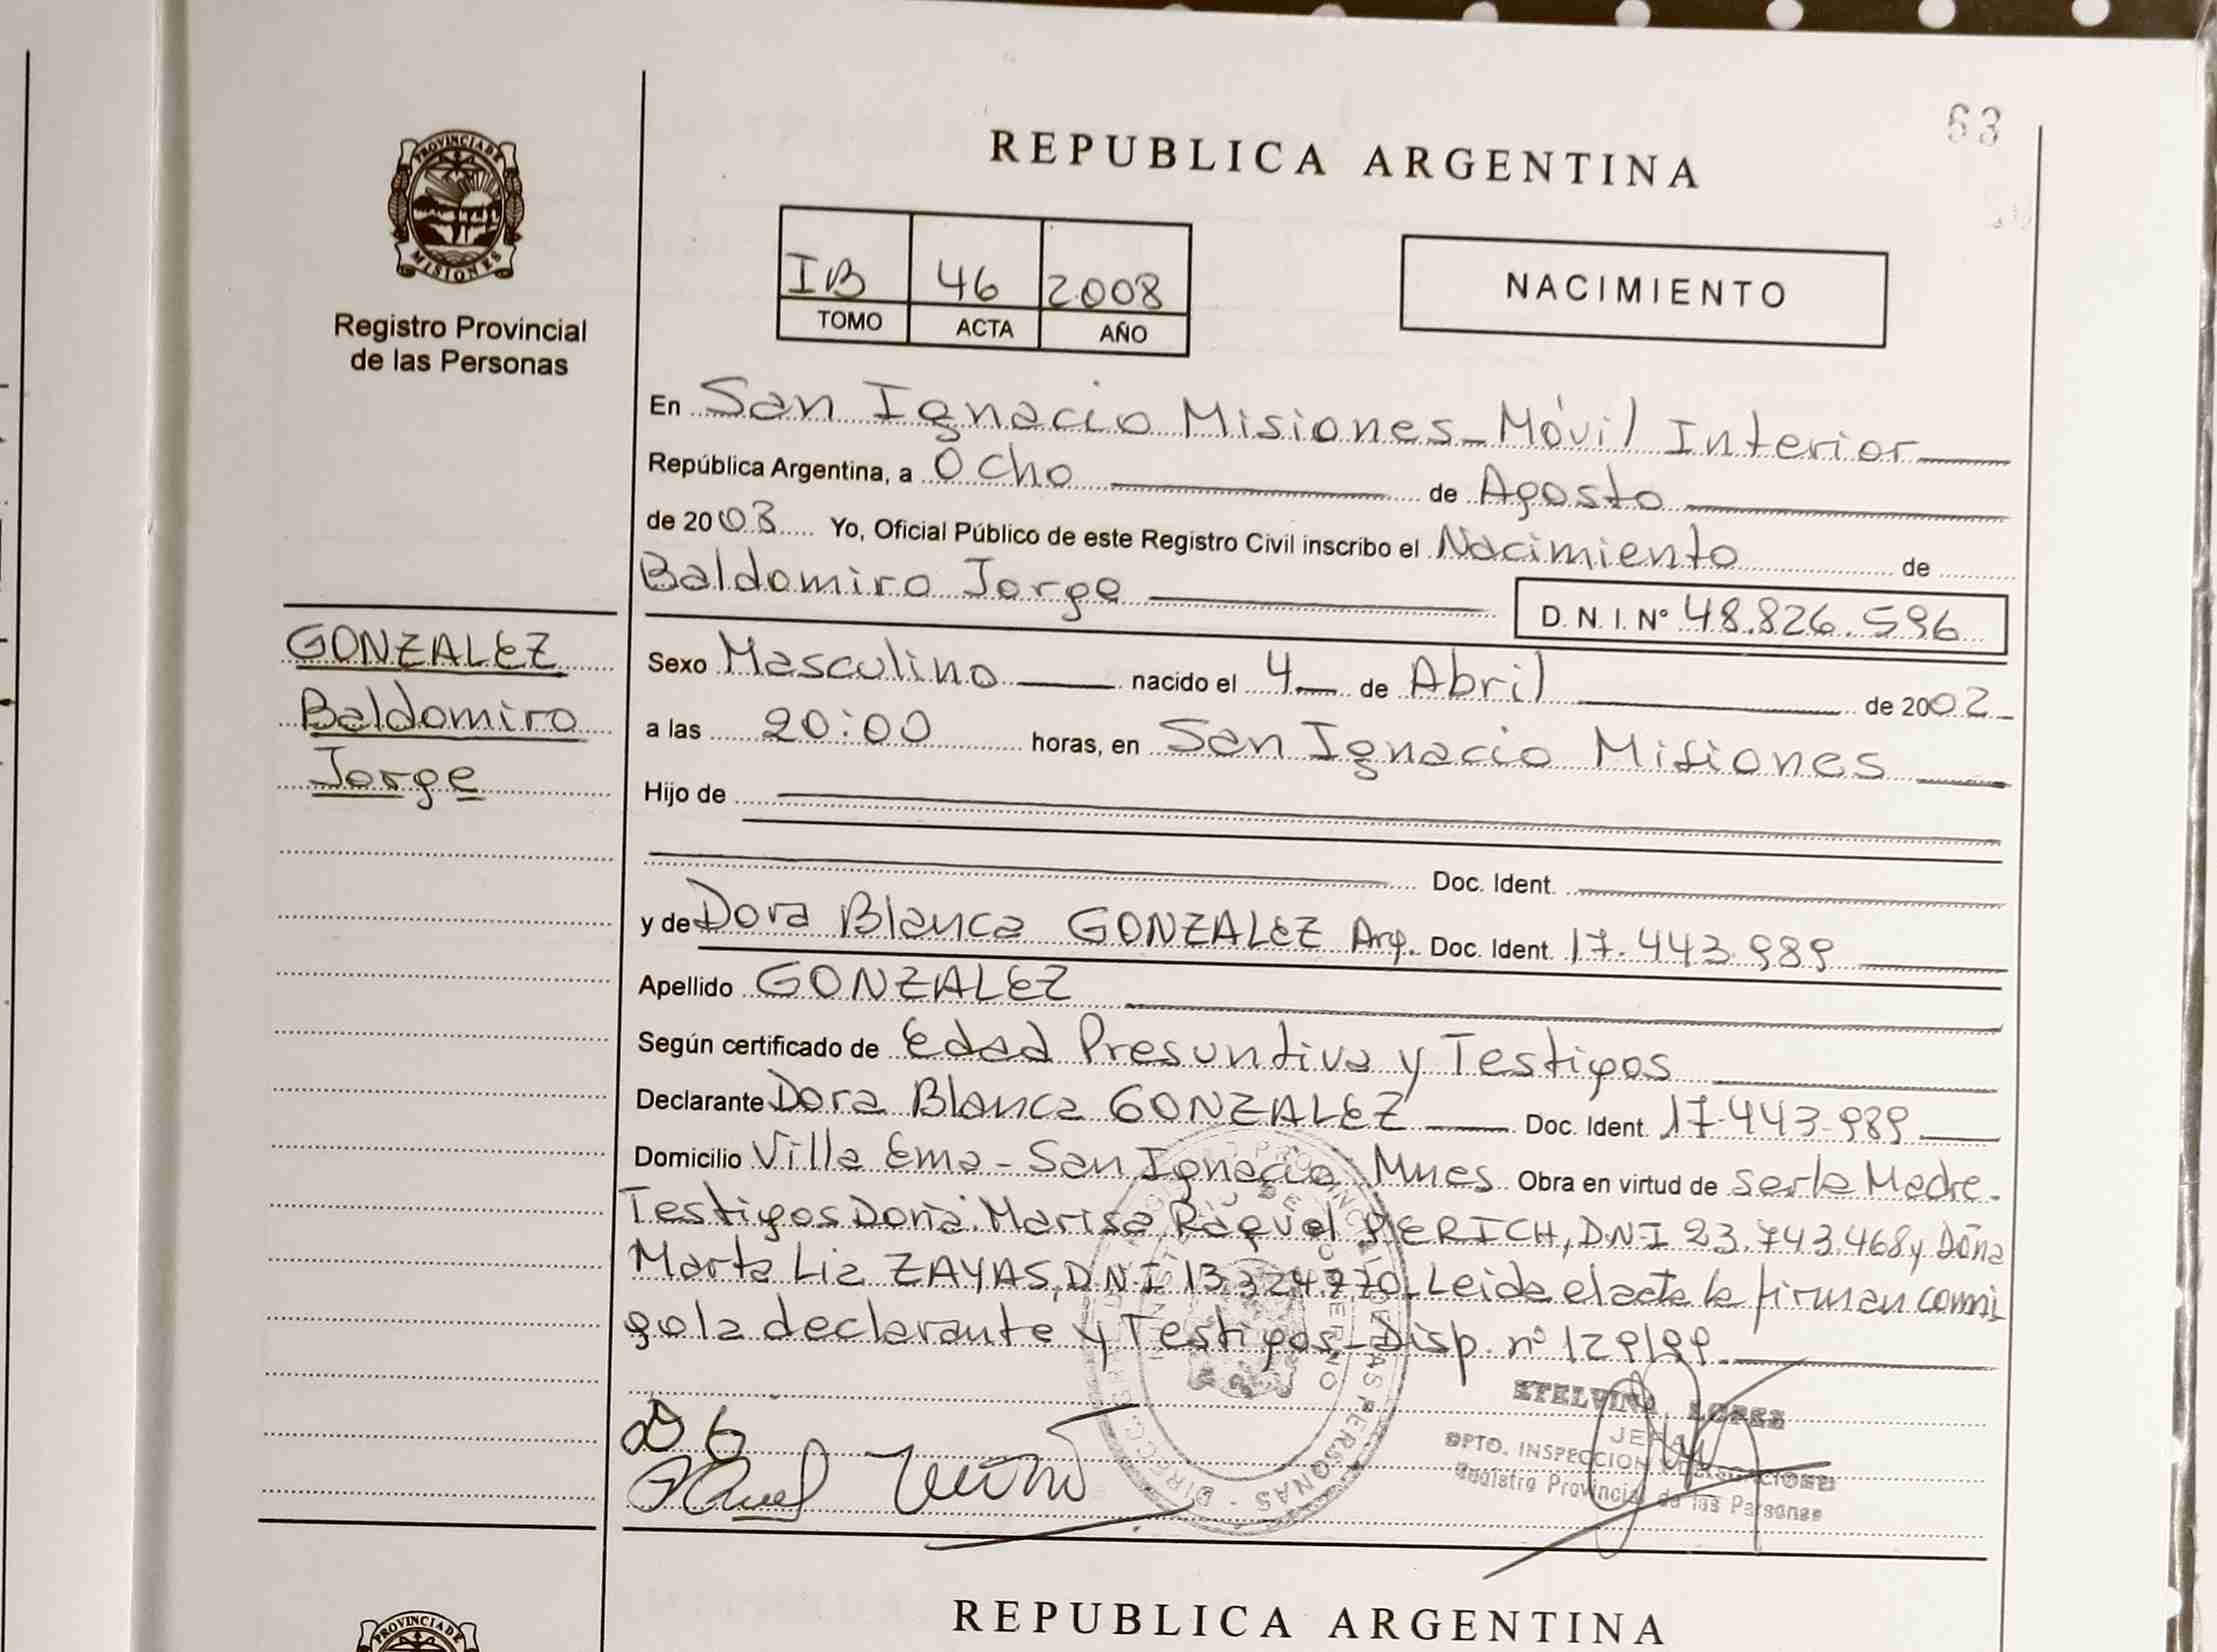 63
REPUBLICA ARGENTINA
PROVINCIA DE
MISIONES
Registro Provincial
de las Personas
IB 46 2008
TOMO ACTA AÑO
NACIMIENTO
En San Ignacio Misiones - Móvil Interior
República Argentina, a Ocho de Agosto
de 2008 Yo, Oficial Público de este Registro Civil inscribo el Nacimiento de
Baldomiro Jorge D. N. I. Nº 48.826.596
GONZALEZ
Baldomiro
Jorge
Sexo Masculino nacido el 4 de Abril de 2002
a las 20:00 horas, en San Ignacio Misiones
Hijo de
Doc. Ident.
y de Dora Blanca GONZALEZ Arg. Doc. Ident. 17.443.989
Apellido GONZALEZ
Según certificado de Edad Presuntiva y Testigos
Declarante Dora Blanca GONZALEZ Doc. Ident. 17.443.989
Domicilio Villa Ema - San Ignacio Mnes Obra en virtud de ser la Madre.
Testigos Doña: Marisa Raquel PERICH, DNI 23.743.468 y Doña
Marta Liz ZAYAS, DNI Leida el acta la firman conmi
go la declarante y Testigos - Disp. nº 129/99
ETELVINA LOPEZ
JEFA
DPTO. INSPECCION Y DELEGACIONES
Registro Provincial de las Personas
REPUBLICA ARGENTINA
PROVINCIA DE